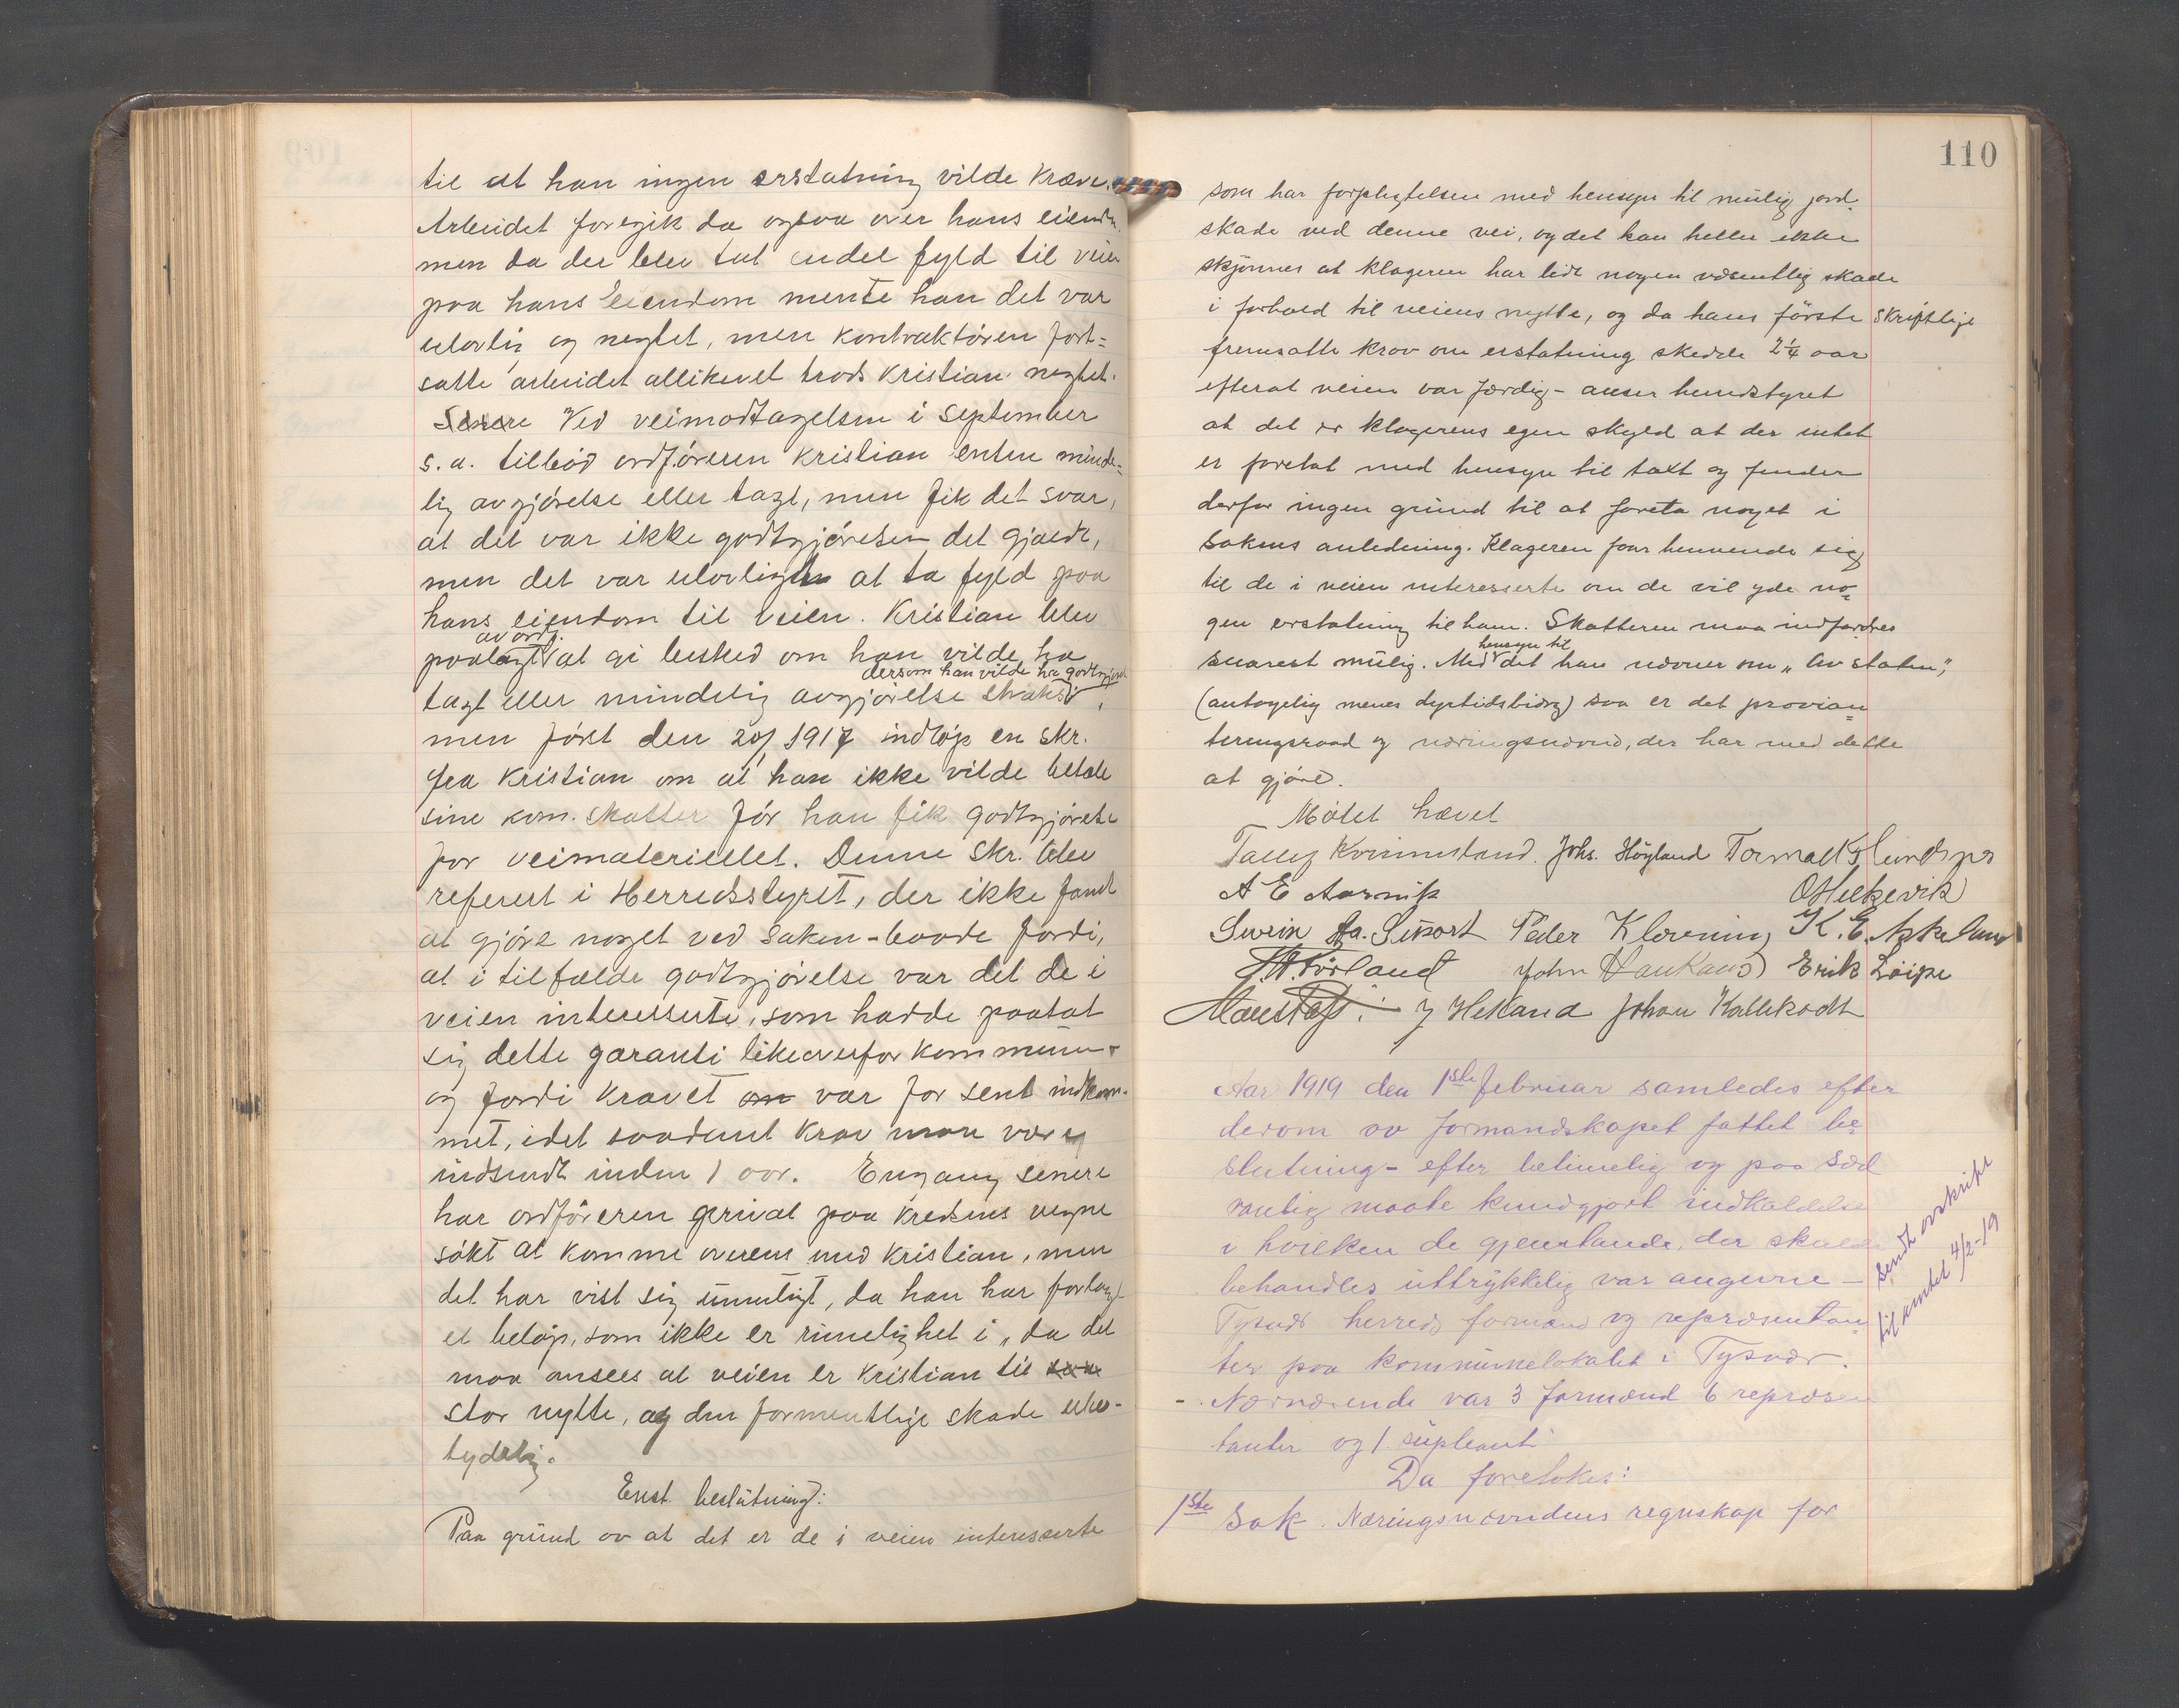 til at han ingen erstatning vilde kræve.
Arbeidet foregik da ogsaa over hans eiendom
men da der blev tat endel fyld til veien
paa hans Eiendom mente han det var
ulovlig og negtet, men kontraktøren fort-
satte arbeidet allikevel trods Kristian negtet.
Senere Ved veimodtagelsen i September
s.a. tilbød ordføreren Kristian enten minde-
lig avgjørelse eller taxt, men fik det svar,
at det var ikke godtgjørelsen det gjaldt,
men det var ulovlig at ta fyld paa
hans eiendom til veien. Kristian blev
av ordf.
paalagt at gi besked om han vilde ha
dersom han vilde ha godtgjørelse
taxt eller mindelig avgjørelse straks,
men først den 20/ 1917 indløp en skr.
fra Kristian om at han ikke vilde betale
sine kom. skatter før han fik godtgjørelse
for veimateriellet. Denne skr. blev
referert i Herredsstyret, der ikke fandt
at gjøre noget ved saken - baade fordi,
at i tilfælde godtgjørelse var det de i
veien interesserte, som hadde paatat
sig dette garanti likeoverfor kommunen
og fordi kravet om var for sent indkom-
met, idet saadant krav maa være
indsendt inden 1 aar. Engang senere
har ordføreren privat paa kredsens vegne
søkt at komme overens med Kristian, men
det har vist sig umuligt, da han har forlangt
et beløp, som ikke er rimelighet i, da det
maa ansees at veien er Kristian til
stor nytte, og den formentlige skade ube-
tydelig.
Enst. beslutning:
Paa grund av at det er de i veien interesserte
110
som har forpligtelsen med hensyn til mulig jord-
skade ved denne vei, og det kan heller ikke
skjønnes at klageren har lidt nogen væsentlig skade
i forhold til veiens nytte, og da hans første skriftlige
fremsatte krav om erstatning skedde 2 1/4 aar
efterat veien var færdig - anser herredstyret
at det er klagerens egen skyld at der intet
er foretat med hensyn til taxt og finder
derfor ingen grund til at foreta noget i
sakens anledning. Klageren faar henvende sig
til de i veien interesserte om de vil yde no-
gen erstatning til ham. Skatteren maa indfordres
hensyn til
snarest mulig. Med det han nævner om "av staten",
(antagelig menes dyrtidsbidrag) saa er det provian-
teringsraad og næringsnævnd, der har med dette
at gjøre.
Møtet hævet
Kvinnesland. Johs. Høyland Tormod
A E Aarvik O Helkevik
Svein Aa. Peder Klovning K. E. Apeland
John Erik Løipe
Johan Kallekodt
Aar 1919 den 1ste februar samledes efter
derom av formandskapet fattet be-
slutning - efter betimelig og paa sæd
vanlig maate kundgjort indkaldelse
i hvilken de gjenstande, der skulde
behandles uttrykkelig var angivne -
Tysvær herreds formænd og repræsentan-
ter paa kommunelokalet i Tysvær.
- Nærværende var 3 formænd 6 repræsen
tanter og 1 supleant
Da foretokes:
1ste Sak. Næringsnævndens regnskap for
Sendt avskrift
til amtet 4/2-19